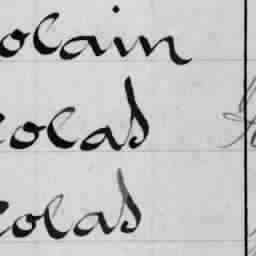 olain
colas
colas